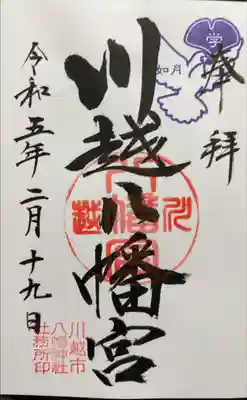 奉拝
学
如月
川越八幡宮
川越
八幡宮
令和五年二月十九日
川越市
八幡神社
社務所印